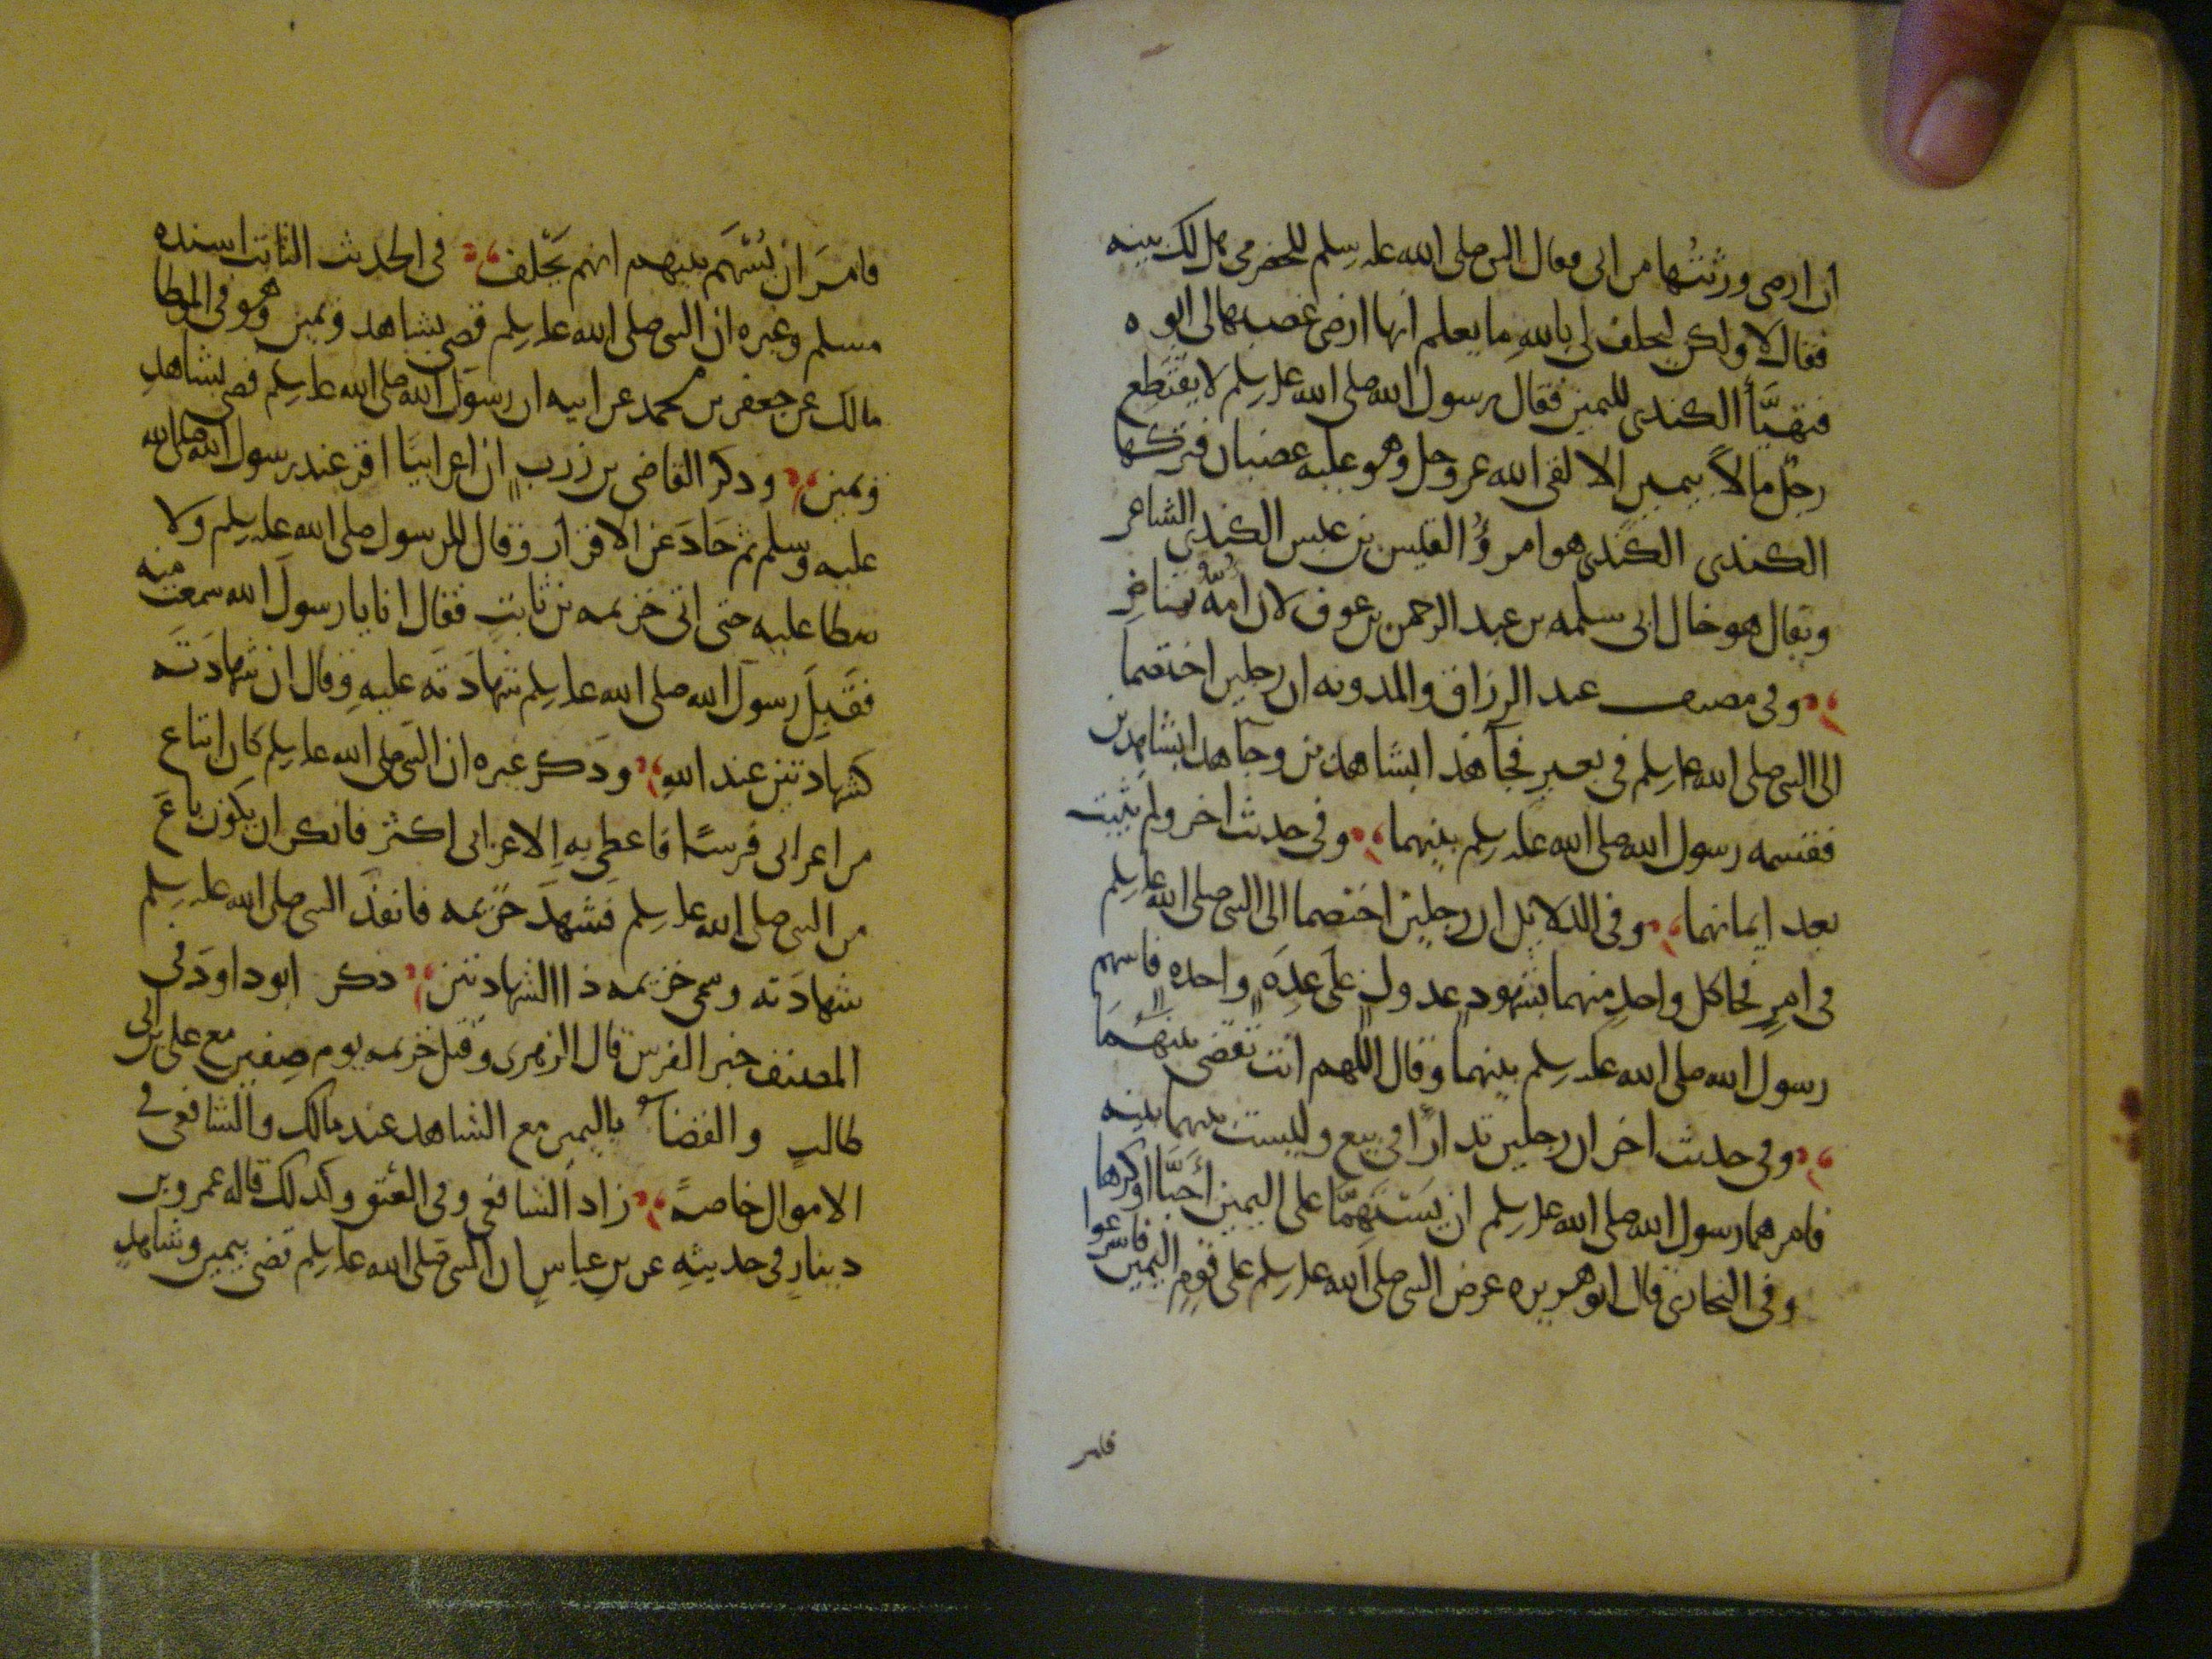 ان ارضى ورثتها من ابى فقال النبى صلى الله عليه وسلم للحضرمى هل لك بينه
فقال لا ولكن يحلف لى بالله ما يعلم انها ارضى غصبها لى ابوه
فتهيَّأ الكندى لليمين فقال رسول الله صلى الله عليه وسلم لا يقتطع
رجل مالاً بيمين الا لقى الله عز وجل وهو عليه غضبان فتركها
الكندى الكندى هو امرؤ القيس بن عابس الكندى الشاعر
ويقال هو خال ابى سلمه بن عبد الرحمن بن عوف لان امُّه تماضر
وفى مصنف عبد الرزاق والمدونه ان رجلين اختصما
الى النبى صلى الله عليه وسلم فى بعير فجآ هذا بشاهدين وجآ هذا بشاهدين
فقسمه رسول الله صلى الله عليه وسلم بينهما وفى حديث اخر ولم يثبت
بعد ايمانهما وفى الدلايل ان رجلين اختصما الى النبى صلى الله عليه وسلم
فى امرٍ فجا كل واحدٍ منهما بشهودٍ عدولٍ على عدةٍ واحده فاسهم
رسول الله صلى الله عليه وسلم بينهما وقال اللهم انت تقضى بينهما
وفى حديث اخر ان رجلين تدارأا فى بيع وليست بينهما بينه
فامرهما رسول الله صلى الله عليه وسلم ان يَسْتَهِمَا على اليمين أحَبَّا او كرها
وفى البخارى قال ابو هريره عرض النبى صلى الله عليه وسلم على قومٍ اليمين فاسرعوا
فامر
فامرَ ان يُسْهَم بينهم ايهم يَحْلف فى الحديث الثابت اسنده
مسلم وغيره ان النبى صلى الله عليه وسلم قضى بشاهد ويمين وهو فى الموطا
مالك عن جعفر بن محمد عن ابيه ان رسول الله صلى الله عليه وسلم قضى بشاهدٍ
ويمين وذكر القاضى بن زرب ان اعرابيًا اقر عند رسول الله صلى الله
عليه وسلم ثم حَادَ عن الاقرار وقال للرسول صلى الله عليه وسلم ولا
عليه حتى اتى خزيمه بن ثابتٍ فقال انا يا رسول الله سمعت منه
فقَبِلَ رسول الله صلى الله عليه وسلم شهادَته عليهِ وقال ان شهادَته
كشهادتين عند الله وذكر غيره ان النبى صلى الله عليه وسلم كان ابتاع
من اعرابى فرسًا فاعطى به الاعرابى اكثر فانكر ان يكون باعَ
من النبى صلى الله عليه وسلم فشهدَ خزيمه فانفذَ النبى صلى الله عليه وسلم
شهادَته وسمى خزيمه ذا الشهادتين ذكر ابو داودَ فى
المصنف خبر الفرس قال الزهرى وقتل خزيمه يوم صفين مع على بن ابى
طالبٍ والقضا باليمين مع الشاهد عند مالك والشافعى فى
الاموال خاصةً زاد الشافعى وفى العتق وكذلك قاله عمرو بن
دينارٍ فى حديثه عن بن عباسٍ ان النبى صلى الله عليه وسلم قضى بيمين وشاهدٍ